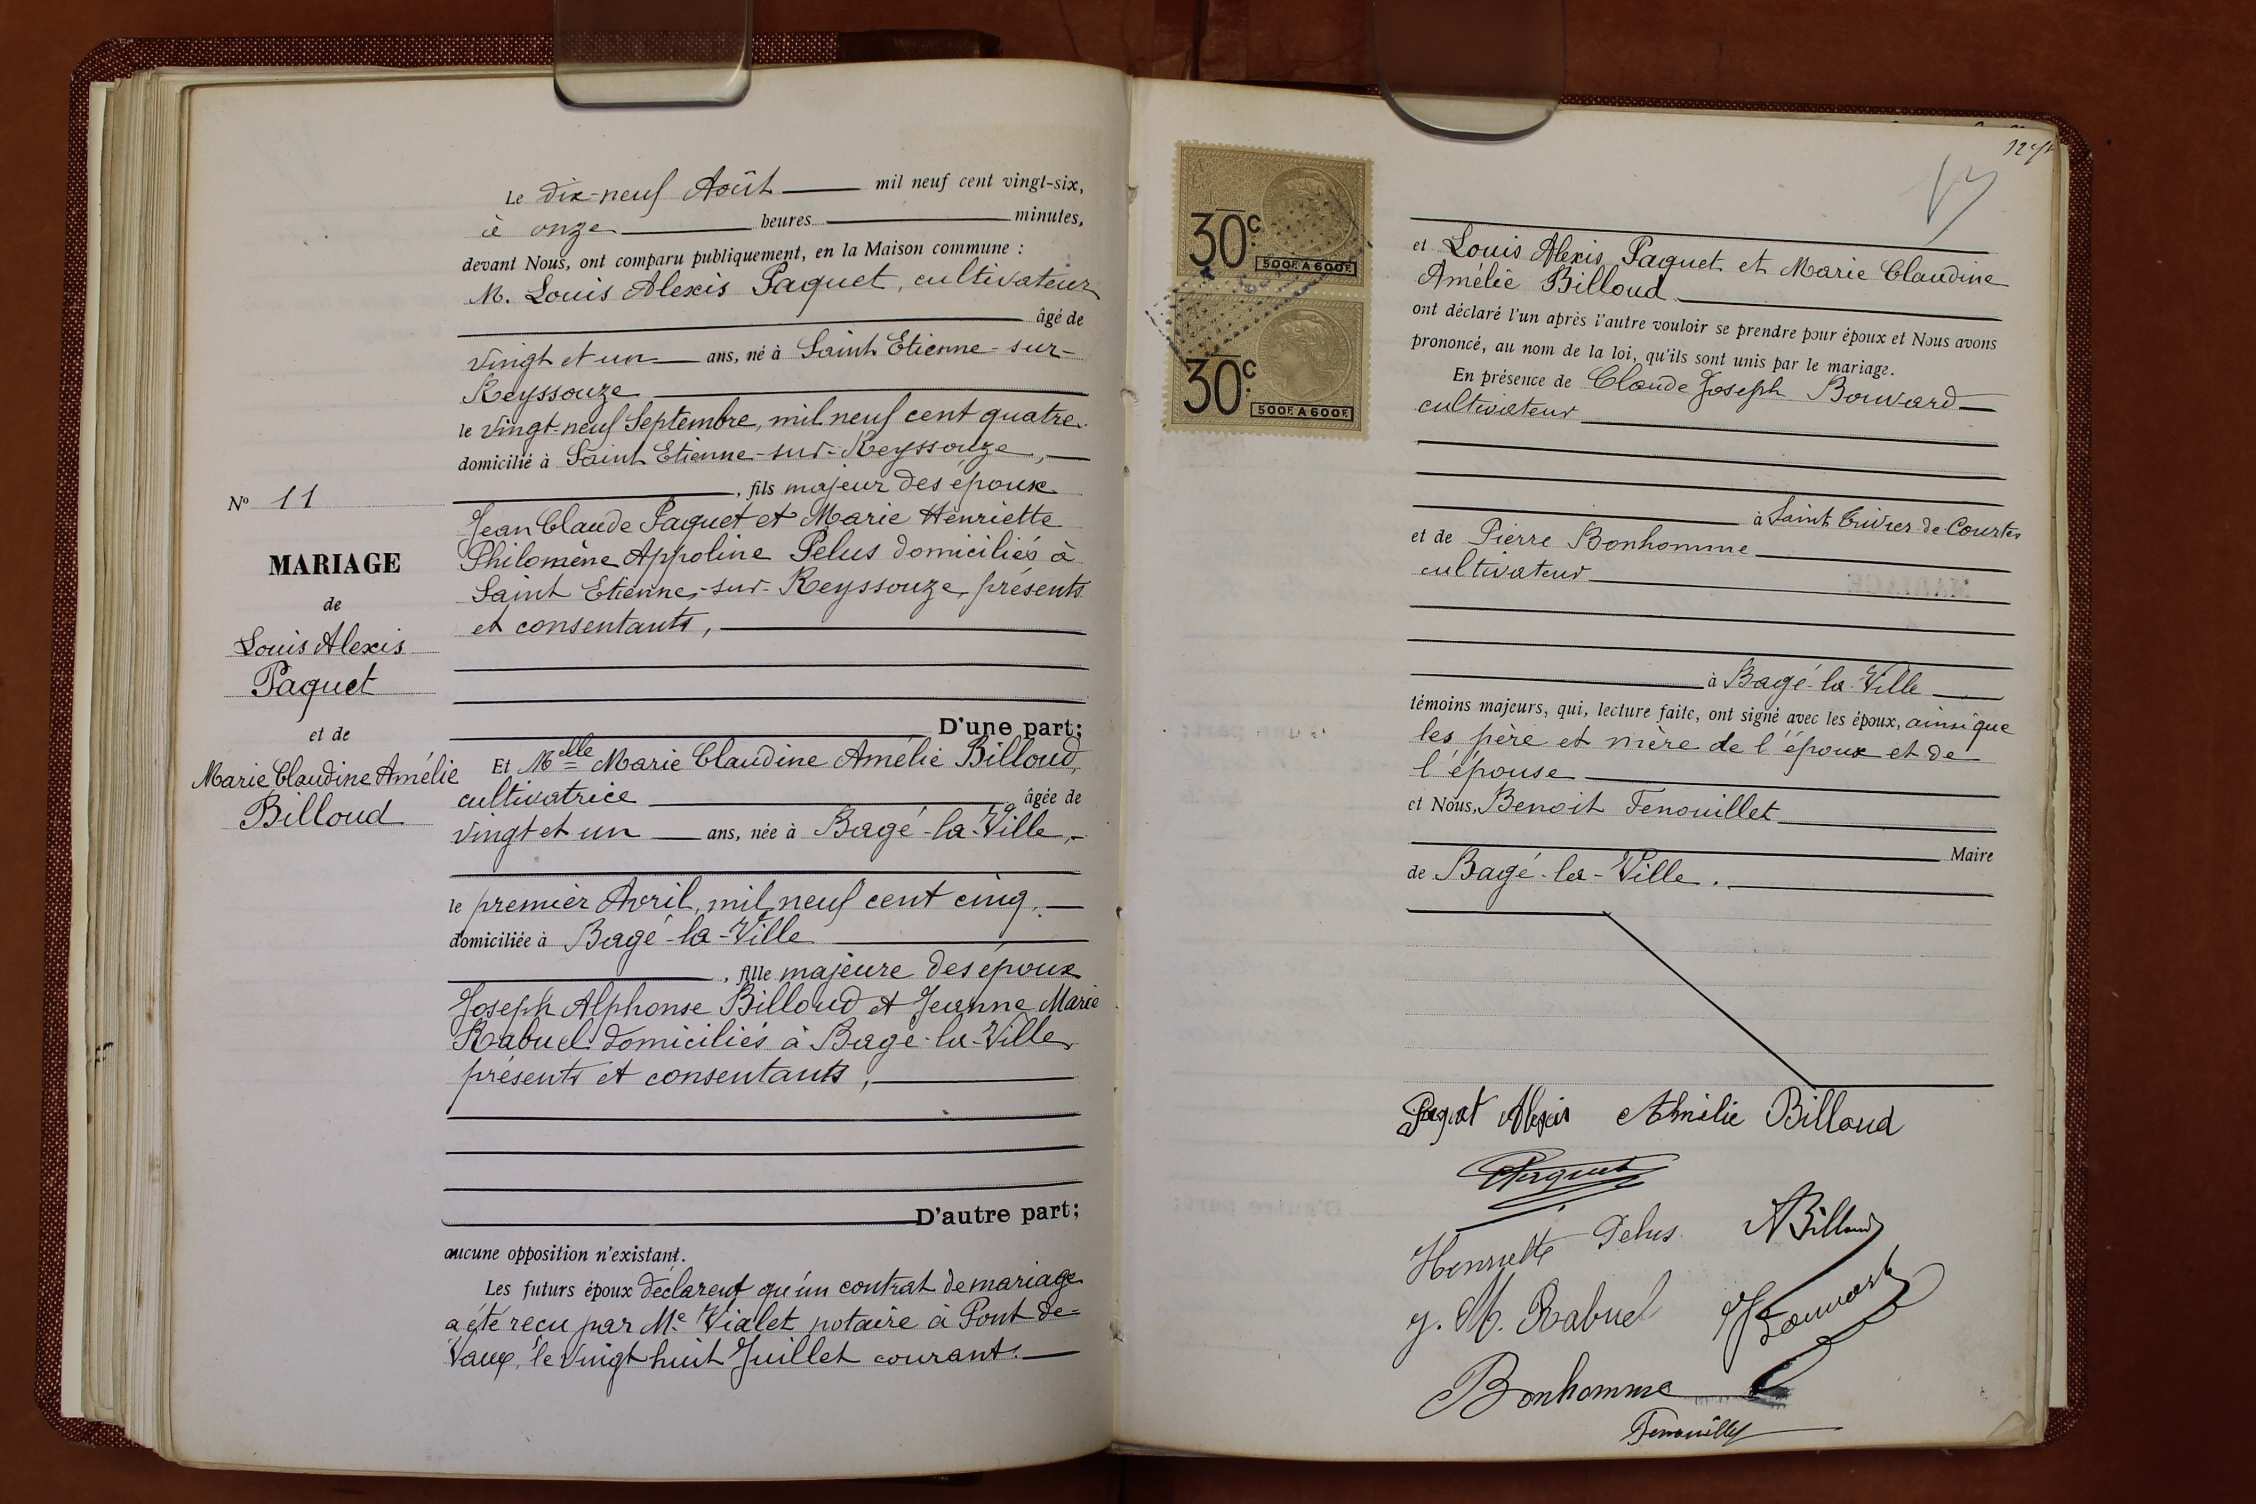 Le dix-neuf Août mil neuf cent vingt-six,
à onze heures minutes,
devant Nous, ont comparu publiquement, en la Maison commune :
M. Louis Alexis Paquet, cultivateur
âgé de
vingt et un ans, né à Saint Etienne-sur-
Reyssouze
le vingt-neuf Septembre, mil neuf cent quatre
domicilié à Saint Etienne-sur-Reyssouze,
, fils majeur des époux
Jean Claude Paquet et Marie Henriette
Philomène Appoline Pelus domiciliés à
Saint Etienne-sur-Reyssouze, présents
et consentants,
D'une part;
Et Melle Marie Claudine Amélie Billoud,
cultivatrice âgée de
vingt et un ans, née à Bagé-la-Ville,
le premier Avril, mil neuf cent cinq,
domiciliée à Bagé-la-Ville
, fille majeure des époux
Joseph Alphonse Billoud et Jeanne Marie
Rabuel domiciliés à Bagé-la-Ville
présents et consentants,
D'autre part;
aucune opposition n'existant.
Les futurs époux déclarent qu'un contrat de mariage
a été reçu par Me Vialet notaire à Pont de-
Vaux, le vingt huit Juillet courant.
No 11
MARIAGE
de
Louis Alexis
Paquet
et de
Marie Claudine Amélie
Billoud
30c.
500F. A 600F.
30c.
500F. A 600F.
et Louis Alexis Paquet et Marie Claudine
Amélie Billoud
ont déclaré l'un après l'autre vouloir se prendre pour époux et Nous avons
prononcé, au nom de la loi, qu'ils sont unis par le mariage.
En présence de Claude Joseph Bouvard
cultivateur
à Saint Trivier de Courtes
et de Pierre Bonhomme
cultivateur
à Bagé-la-Ville
témoins majeurs, qui, lecture faite, ont signé avec les époux, ainsi que
les père et mère de l'époux et de
l'épouse
et Nous, Benoit Fenouillet
Maire
de Bagé-la-Ville.
Paquet Alexis Amélie Billoud
Paquet
Henriette Pelus A Billoud
J. M. Rabuel J Bouvard
Bonhomme
Fenouillet